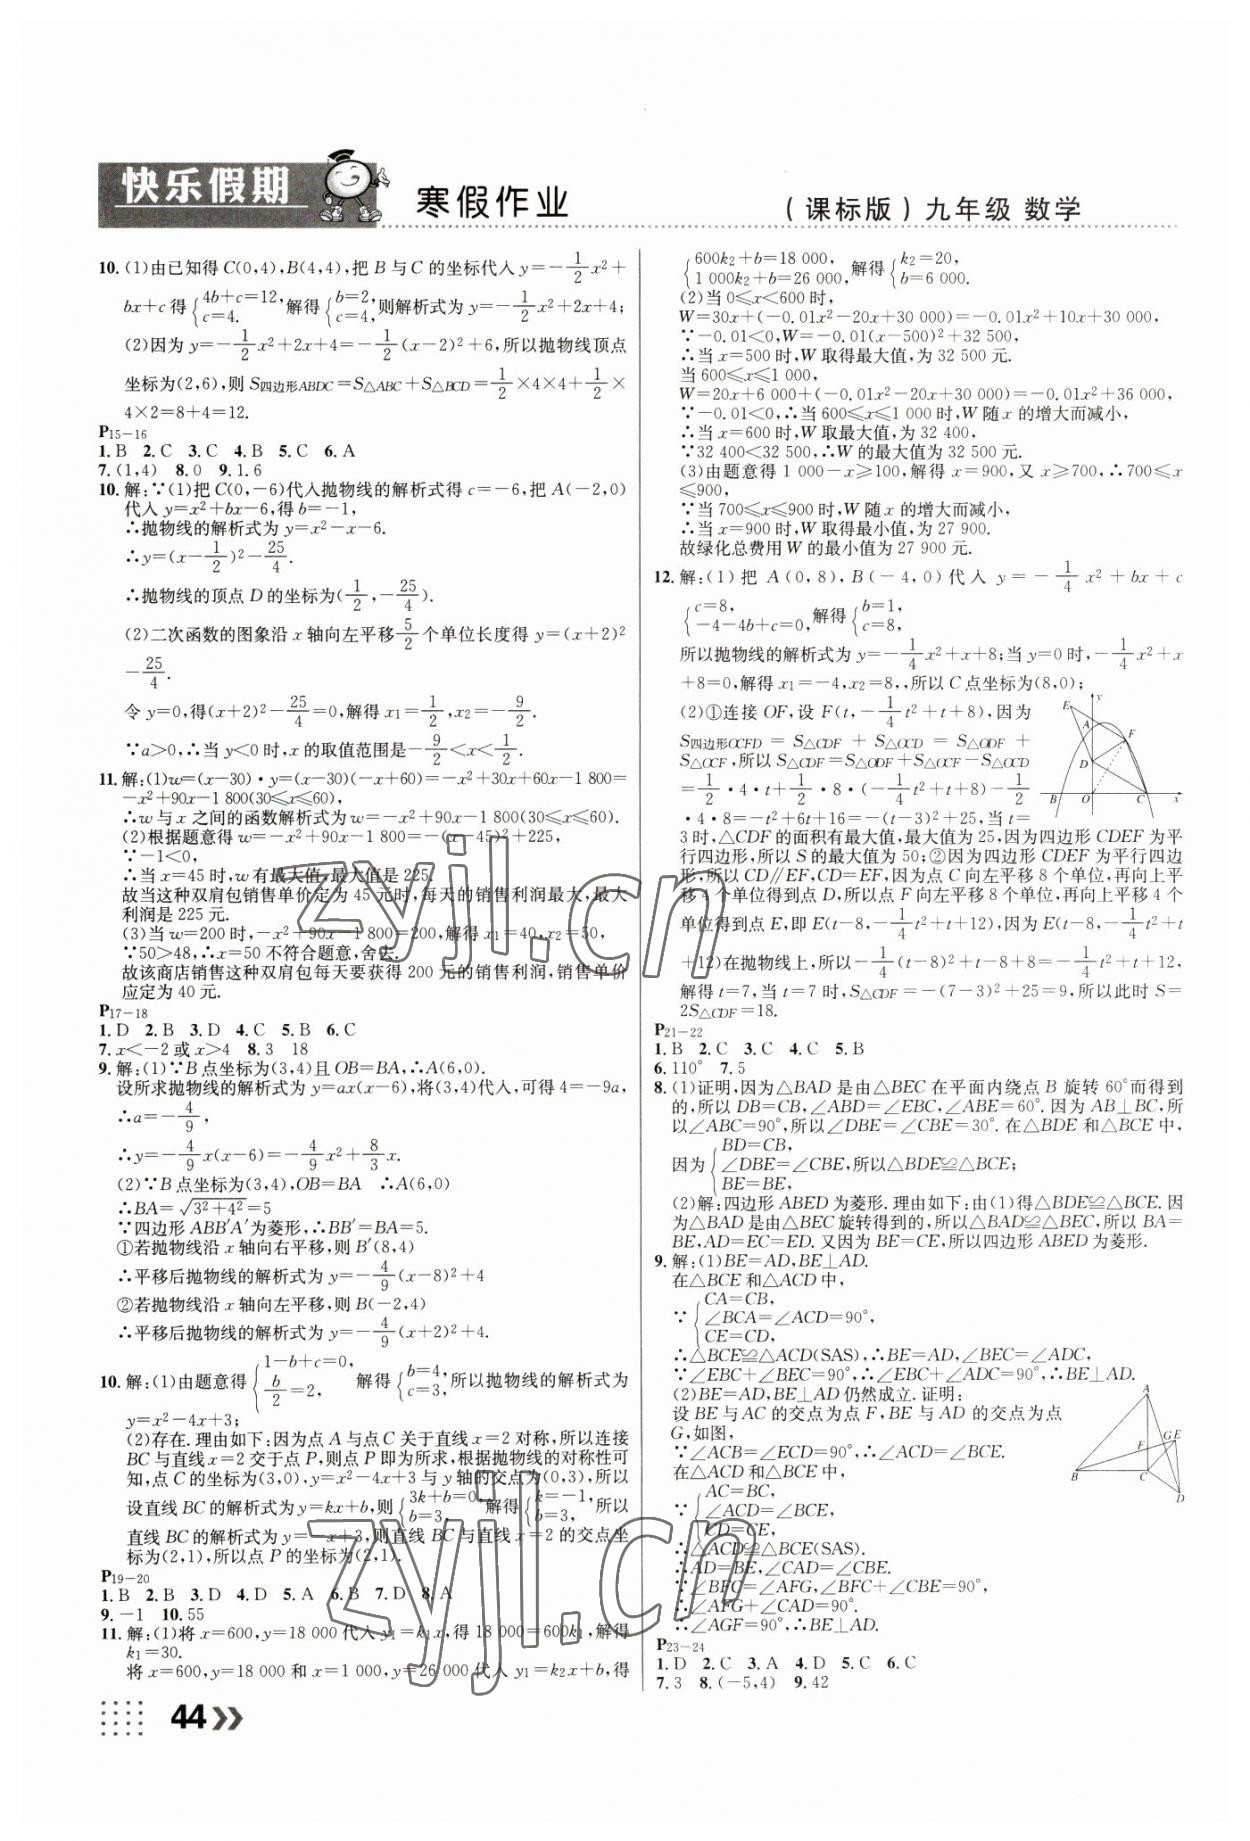 快乐假期
寒假作业
(课标版)九年级 数学
10.(1)由已知得C(0,4),B(4,4),把B与C的坐标代入y=-1/2x²+
bx+c得{4b+c=12, c=4. 解得{b=2, c=4, 则解析式为y=-1/2x²+2x+4;
(2)因为y=-1/2x²+2x+4=-1/2(x-2)²+6,所以抛物线顶点
坐标为(2,6),则S四边形ABDC=S△ABC+S△BCD=1/2×4×4+1/2×
4×2=8+4=12.
P15-16
1.B 2.C 3.C 4.B 5.C 6.A
7.(1,4) 8.0 9.1.6
10.解:∵(1)把C(0,-6)代入抛物线的解析式得c=-6,把A(-2,0)
代入y=x²+bx-6,得b=-1,
∴抛物线的解析式为y=x²-x-6.
∴y=(x-1/2)²-25/4.
∴抛物线的顶点D的坐标为(1/2,-25/4).
(2)二次函数的图象沿x轴向左平移5/2个单位长度得y=(x+2)²
-25/4.
令y=0,得(x+2)²-25/4=0,解得x₁=1/2,x₂=-9/2.
∵a>0,∴当y<0时,x的取值范围是-9/2<x<1/2.
11.解:(1)w=(x-30)·y=(x-30)(-x+60)=-x²+30x+60x-1 800=
-x²+90x-1 800(30≤x≤60),
∴w与x之间的函数解析式w=-x²+90x-1 800(30≤x≤60).
(2)根据题意得w=-x²+90x-1 800=-(x-45)²+225,
∵-1<0,
∴当x=45时,w有最大值,最大值是225.
故当这种双肩包销售单价定为45元时,每天的销售利润最大,最大
利润是225元.
(3)当w=200时,-x²+90x-1 800=200,解得x₁=40,x₂=50,
∵50>48,∴x=50不符合题意,舍去.
故该商店销售这种双肩包每天要获得200元的销售利润,销售单价
应定为40元.
P17-18
1.D 2.B 3.D 4.C 5.B 6.C
7.x<-2或x>4 8.3 18
9.解:(1)∵B点坐标为(3,4)且OB=BA,∴A(6,0).
设所求抛物线的解析式为y=ax(x-6),将(3,4)代人,可得4=-9a,
∴a=-4/9,
∴y=-4/9x(x-6)=-4/9x²+8/3x.
(2)∵B点坐标为(3,4),OB=BA ∴A(6,0)
∴BA=√(3²+4²)=5
∵四边形ABB′A′为菱形,∴BB′=BA=5.
①若抛物线沿x轴向右平移,则B′(8,4)
∴平移后抛物线的解析式为y=-4/9(x-8)²+4
②若抛物线沿x轴向左平移,则B(-2,4)
∴平移后抛物线的解析式为y=-4/9(x+2)²+4.
10.解:(1)由题意得{1-b+c=0, b/2=2, 解得{b=4, c=3, 所以抛物线的解析式为
y=x²-4x+3;
(2)存在.理由如下:因为点A与点C关于直线x=2对称,所以连接
BC与直线x=2交于点P,则点P即为所求,根据抛物线的对称性可
知,点C的坐标为(3,0),y=x²-4x+3与y轴的交点为(0,3),所以
设直线BC的解析式为y=kx+b,则{3k+b=0, b=3, 解得{k=-1, b=3, 所以
直线BC的解析式为y=-x+3,则直线BC与直线x=2的交点坐
标为(2,1),所以点P的坐标为(2,1).
P19-20
1.B 2.B 3.D 4.D 5.A 6.B 7.D 8.A
9.-1 10.55
11.解:(1)将x=600,y=18 000代入y₁=k₁x,得18 000=600k₁,解得
k₁=30.
将x=600,y=18 000和x=1 000,y=26 000代人y₁=k₂x+b,得
44
{600k₂+b=18 000, 1 000k₂+b=26 000, 解得{k₂=20, b=6 000.
(2)当0≤x<600时,
W=30x+(-0.01x²-20x+30 000)=-0.01x²+10x+30 000,
∵-0.01<0,W=-0.01(x-500)²+32 500,
∴当x=500时,W取得最大值,为32 500元.
当600≤x≤1 000,
W=20x+6 000+(-0.01x²-20x+30 000)=-0.01x²+36 000,
∵-0.01<0,∴当600≤x≤1 000时,W随x的增大而减小,
∴当x=600时,W取最大值,为32 400,
∵32 400<32 500,∴W的最大值为32 500元.
(3)由题意得1 000-x≥100,解得x=900,又x≥700,∴700≤x
≤900,
∵当700≤x≤900时,W随x的增大而减小,
∴当x=900时,W取得最小值,为27 900.
故绿化总费用W的最小值为27 900元.
12.解:(1)把A(0,8),B(-4,0)代入y=-1/4x²+bx+c
{c=8, -4-4b+c=0, 解得{b=1, c=8,
所以抛物线的解析式为y=-1/4x²+x+8;当y=0时,-1/4x²+x
+8=0,解得x₁=-4,x₂=8,,所以C点坐标为(8,0);
(2)①连接OF,设F(t,-1/4t²+t+8),因为
S四边形OCFD=S△CDF+S△OCD=S△ODF+
S△OCF,所以S△CDF=S△ODF+S△OCF-S△OCD
=1/2·4·t+1/2·8·(-1/4t²+t+8)-1/2
·4·8=-t²+6t+16=-(t-3)²+25,当t=
3时,△CDF的面积有最大值,最大值为25,因为四边形CDEF为平
行四边形,所以S的最大值为50;②因为四边形CDEF为平行四边
形,所以CD∥EF,CD=EF,因为点C向左平移8个单位,再向上平
移4个单位得到点D,所以点F向左平移8个单位,再向上平移4个
单位得到点E,即E(t-8,-1/4t²+t+12),因为E(t-8,-1/4t²+t
+12)在抛物线上,所以-1/4(t-8)²+t-8+8=-1/4t²+t+12,
解得t=7,当t=7时,S△CDF=-(7-3)²+25=9,所以此时S=
2S△CDF=18.
y
E
A
F
D
B
O
C
x
P21-22
1.B 2.C 3.C 4.C 5.B
6.110° 7.5
8.(1)证明,因为△BAD是由△BEC在平面内绕点B旋转60°而得到
的,所以DB=CB,∠ABD=∠EBC,∠ABE=60°.因为AB⊥BC,所
以∠ABC=90°,所以∠DBE=∠CBE=30°.在△BDE和△BCE中,
因为{BD=CB, ∠DBE=∠CBE, BE=BE, 所以△BDE≌△BCE;
(2)解:四边形ABED为菱形.理由如下:由(1)得△BDE≌△BCE.因
为△BAD是由△BEC旋转得到的,所以△BAD≌△BEC,所以BA=
BE,AD=EC=ED.又因为BE=CE,所以四边形ABED为菱形.
9.解:(1)BE=AD,BE⊥AD.
在△BCE和△ACD中,
∵{CA=CB, ∠BCA=∠ACD=90°, CE=CD,
∴△BCE≌△ACD(SAS),∴BE=AD,∠BEC=∠ADC,
∵∠EBC+∠BEC=90°,∴∠EBC+∠ADC=90°,∴BE⊥AD.
(2)BE=AD,BE⊥AD仍然成立.证明:
设BE与AC的交点为点F,BE与AD的交点为点
G,如图,
∵∠ACB=∠ECD=90°,∴∠ACD=∠BCE.
在△ACD和△BCE中,
∵{AC=BC, ∠ACD=∠BCE, CD=CE,
∴△ACD≌△BCE(SAS).
∴AD=BE,∠CAD=∠CBE.
∵∠BFC=∠AFG,∠BFC+∠CBE=90°,
∴∠AFG+∠CAD=90°.
∴∠AGF=90°,∴BE⊥AD.
A
F
G E
B
C
D
P23-24
1.D 2.C 3.A 4.D 5.C 6.C
7.3 8.(-5,4) 9.42
zyjl.cn
zyjl.cn